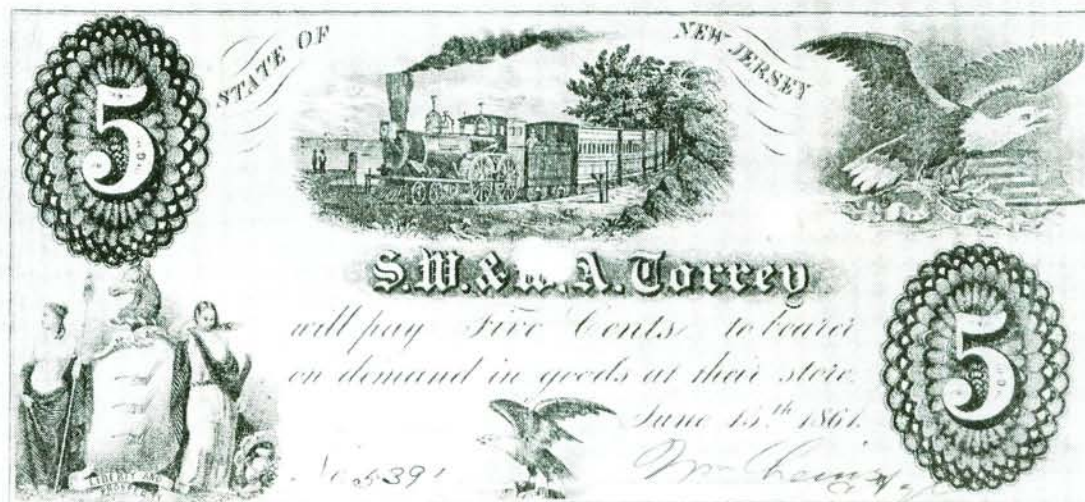 5
STATE OF NEW JERSEY
S.W. & W. A. Torrey
will pay Five Cents to bearer
on demand in goods at their store.
June 15th 1861.
No 5391
5
LIBERTY AND
PROSPERITY